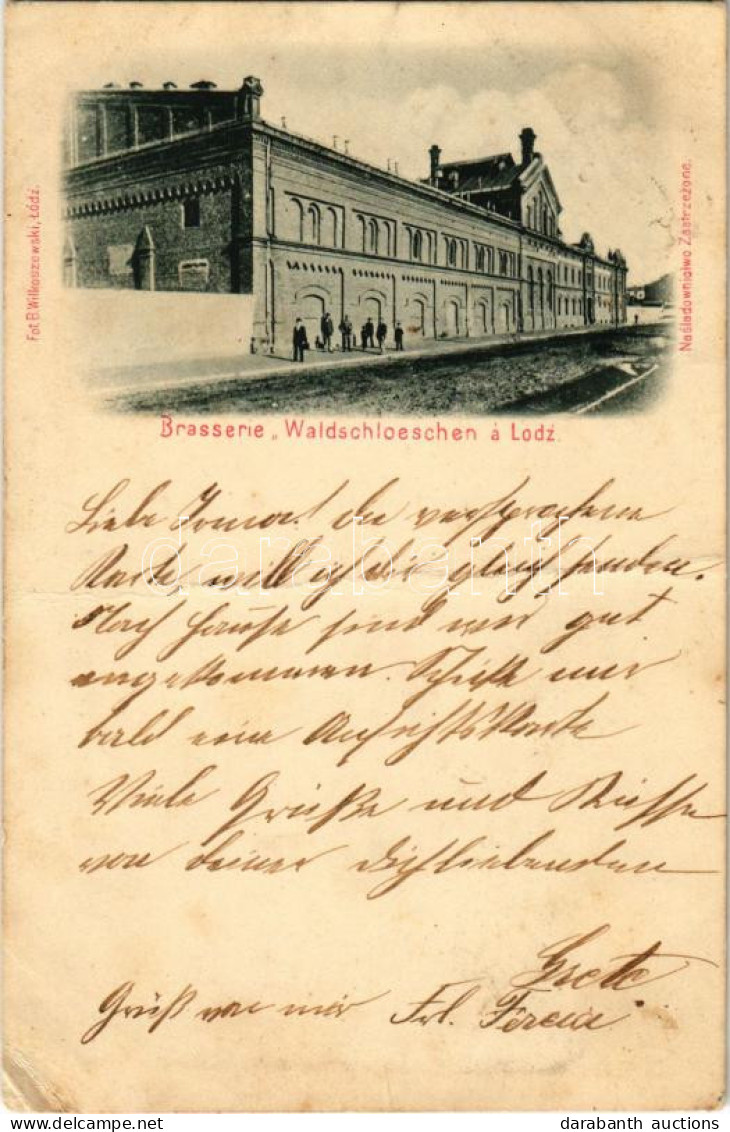 Fot. B. Wilkoszewski, Łódź.
Naśladownictwo Zastrzeżone.
Brasserie „Waldschloeschen á Lodź.
Liebe Irma! die versprochene
Karte will ich dir gleich senden.
Nach Hause sind wir gut
angekommen. Schicke mir
bald eine Ansichtskarte
Viele Grüße und Küsse
von deiner dichliebenden
Grete.
Gruß von mir Frl.
darabanth
darabanth auctions